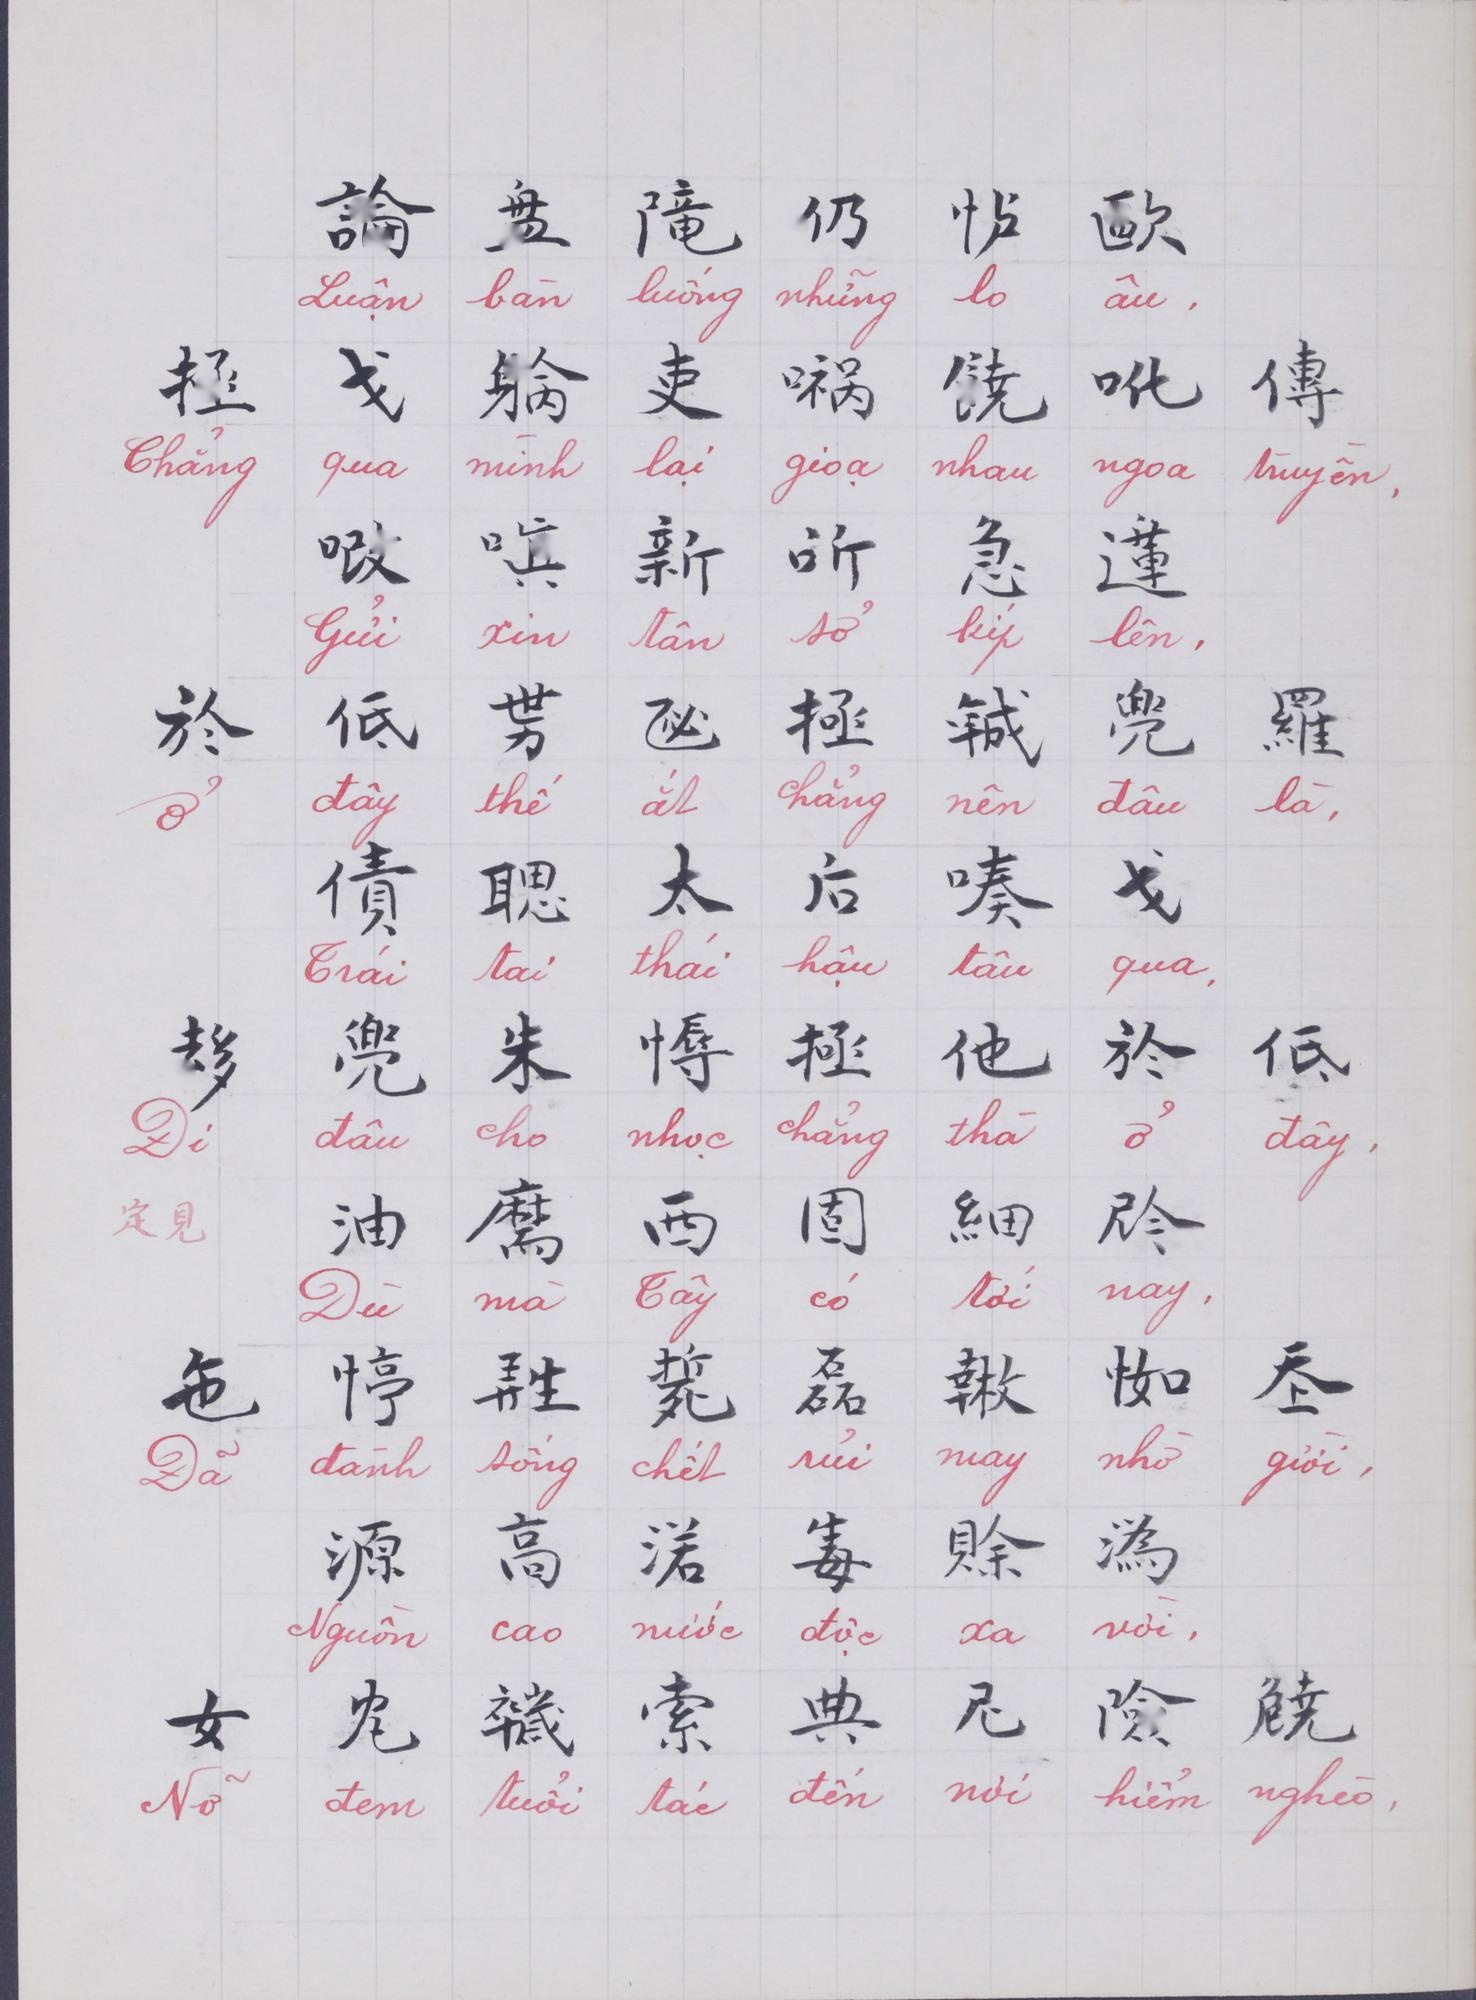 論盘隆仍怗歐
Luận bàn luống những lo âu,
極戈躺吏㗖饒吪傳
Chẳng qua mình lại gioạ nhau ngoa truyền,
嗔新所急蓮
Gửi xin tân sở kíp lên,
於低極兜羅
Ở đây thế ắt chẳng nên đâu là,
債聰太后嗪戈
Trái tai thái hậu tâu qua,
兜朱極他於低
Đi đâu cho nhọc chẳng thà ở đây,
定見
油麿西固細
Dù mà Tây có tới nay,
磊
Đã đành sống chết rủi may nhờ giời,
源高渃毒賒潙
Nguồn cao nước độc xa vời,
女索典尼險
Nỡ đem tuổi tác đến nơi hiểm nghèo,